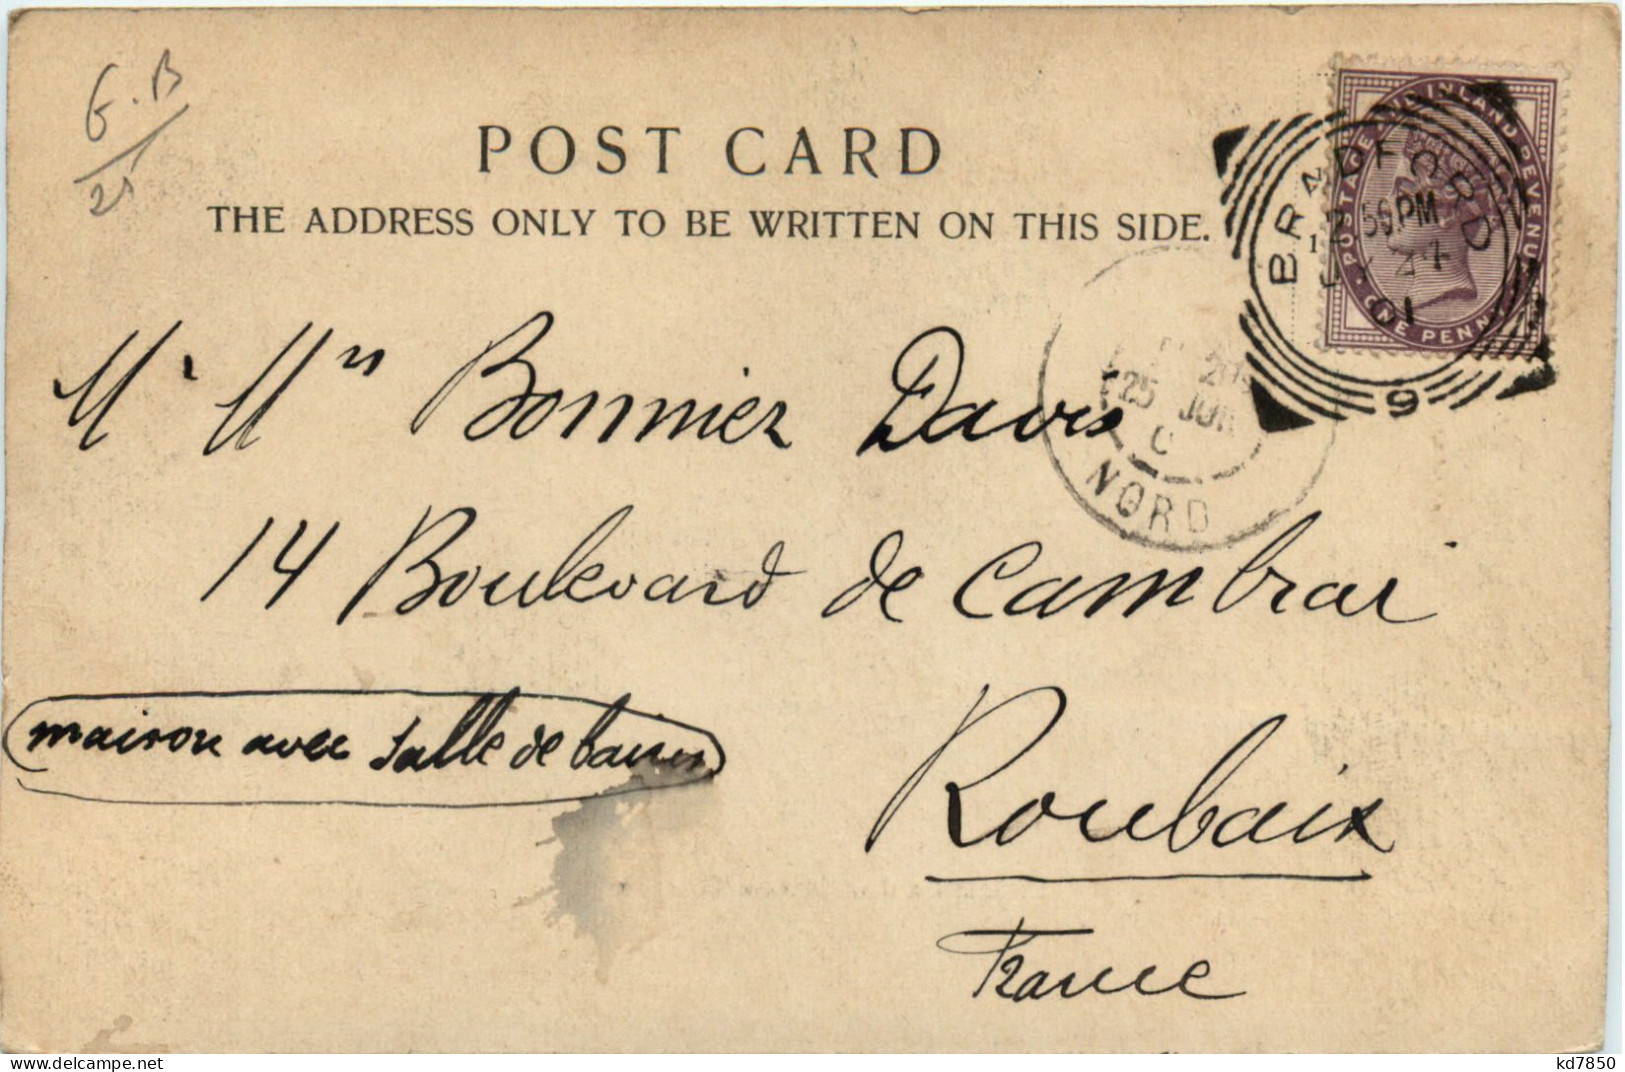 G.B
25
POST CARD
THE ADDRESS ONLY TO BE WRITTEN ON THIS SIDE.
POSTAGE AND INLAND REVENUE
ONE PENNY
BRADFORD
12 56 PM
24
01
9
25 JUIN
NORD
Mr Mme Bonnier Davis
14 Boulevard de Cambrai
maison avec salle de bains
Roubaix
France
www.delcampe.net
kd7850